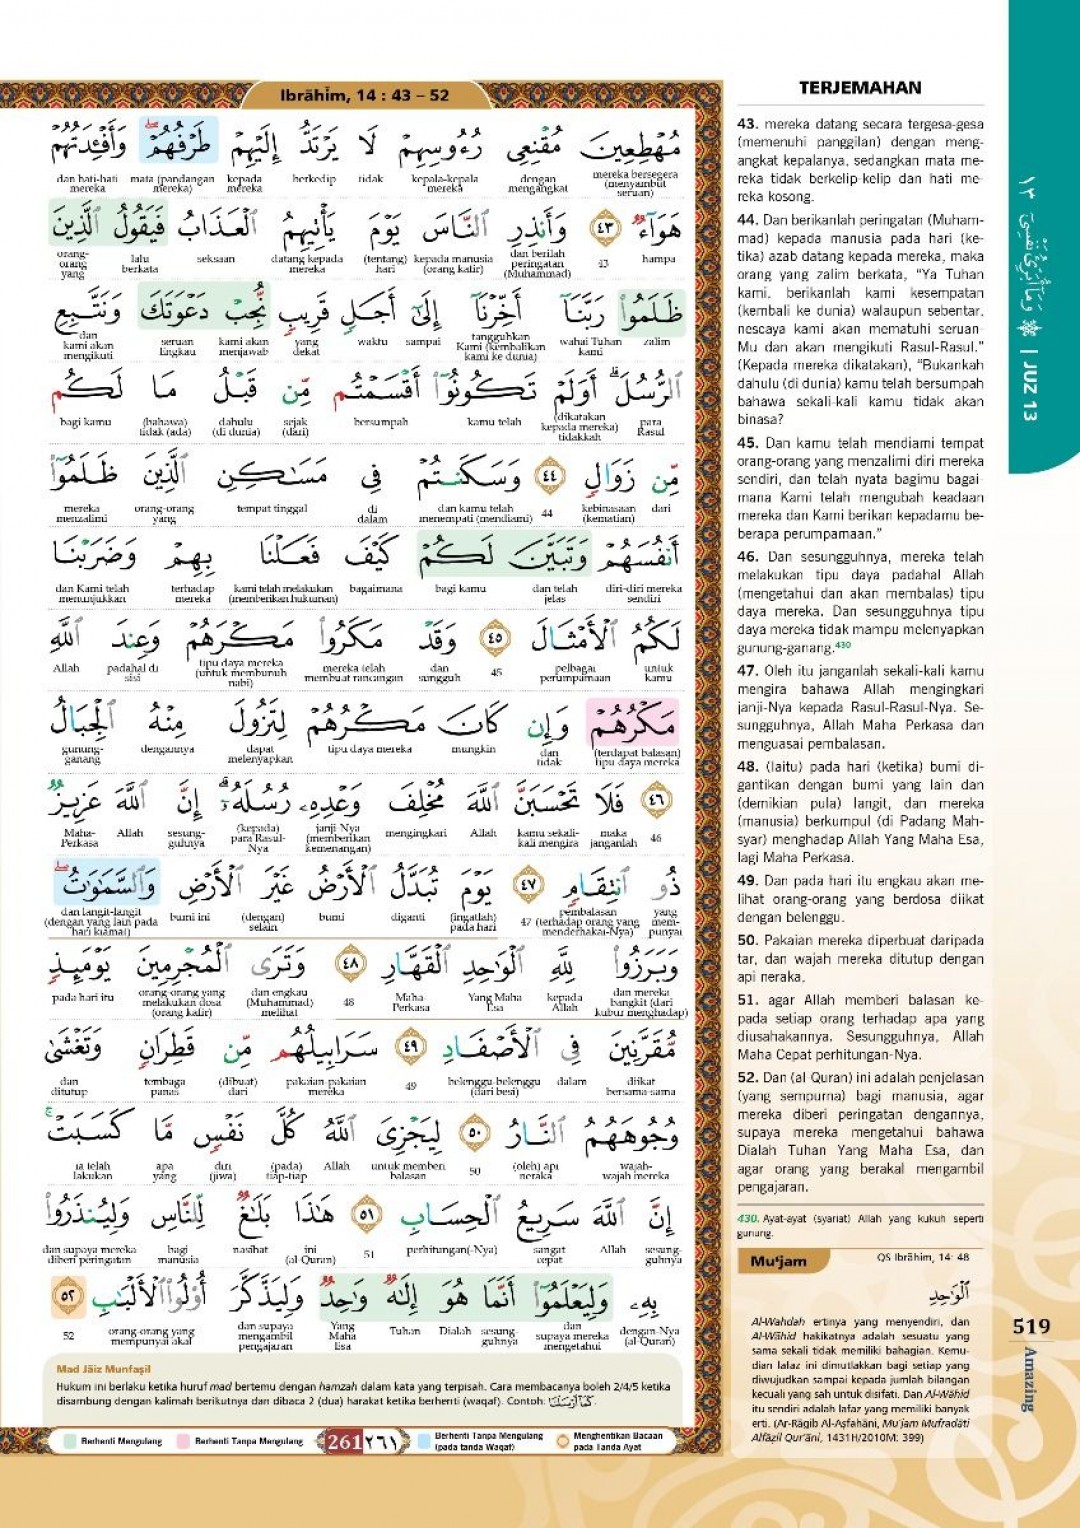 Ibrāhīm, 14 : 43 – 52
مُهْطِعِينَ مُقْنِعِى رُءُوسِهِمْ لَا يَرْتَدُّ إِلَيْهِمْ طَرْفُهُمْ ۖ وَأَفْـِٔدَتُهُمْ
mereka bersegera (menyambut seruan) dengan mengangkat kepala-kepala mereka tidak berkedip kepada mereka mata (pandangan mereka) dan hati-hati mereka
هَوَآءٌ ٤٣ وَأَنذِرِ ٱلنَّاسَ يَوْمَ يَأْتِيهِمُ ٱلْعَذَابُ فَيَقُولُ ٱلَّذِينَ
hampa 43 dan berilah peringatan (Muhammad) kepada manusia (orang kafir) (tentang) hari datang kepada mereka seksaan lalu berkata orang-orang yang
ظَلَمُوا۟ رَبَّنَآ أَخِّرْنَآ إِلَىٰٓ أَجَلٍ قَرِيبٍ نُّجِبْ دَعْوَتَكَ وَنَتَّبِعِ
zalim wahai Tuhan kami tangguhkan Kami (kembalikan kami ke dunia) sampai waktu yang dekat kami akan menjawab seruan Engkau dan kami akan mengikuti
ٱلرُّسُلَ ۗ أَوَلَمْ تَكُونُوٓا۟ أَقْسَمْتُم مِّن قَبْلُ مَا لَكُم
para Rasul (dikatakan kepada mereka) tidakkah kamu telah bersumpah sejak (dari) dahulu (di dunia) (bahawa) tidak (ada) bagi kamu
مِّن زَوَالٍ ٤٤ وَسَكَنتُمْ فِى مَسَـٰكِنِ ٱلَّذِينَ ظَلَمُوٓا۟
dari kebinasaan (kematian) 44 dan kamu telah menempati (mendiami) di dalam tempat tinggal orang-orang yang mereka menzalimi
أَنفُسَهُمْ وَتَبَيَّنَ لَكُمْ كَيْفَ فَعَلْنَا بِهِمْ وَضَرَبْنَا
diri-diri mereka sendiri dan telah jelas bagi kamu bagaimana kami telah melakukan (memberikan hukuman) terhadap mereka dan Kami telah menunjukkan
لَكُمُ ٱلْأَمْثَالَ ٤٥ وَقَدْ مَكَرُوا۟ مَكْرَهُمْ وَعِندَ ٱللَّهِ
untuk kamu pelbagai perumpamaan 45 dan sungguh mereka telah membuat rancangan tipu daya mereka (untuk membunuh nabi) padahal di sisi Allah
مَكْرُهُمْ وَإِن كَانَ مَكْرُهُمْ لِتَزُولَ مِنْهُ ٱلْجِبَالُ
(terdapat balasan) tipu daya mereka dan tidak mungkin tipu daya mereka dapat melenyapkan dengannya gunung-ganang
٤٦ فَلَا تَحْسَبَنَّ ٱللَّهَ مُخْلِفَ وَعْدِهِۦ رُسُلَهُۥٓ ۗ إِنَّ ٱللَّهَ عَزِيزٌ
46 maka janganlah kamu sekali-kali mengira Allah mengingkari janji-Nya (memberikan kemenangan) (kepada) para Rasul-Nya sesungguhnya Allah Maha-Perkasa
ذُو ٱنتِقَامٍ ٤٧ يَوْمَ تُبَدَّلُ ٱلْأَرْضُ غَيْرَ ٱلْأَرْضِ وَٱلسَّمَـٰوَٰتُ ۖ
yang mempunyai pembalasan (terhadap orang yang menderhakai-Nya) 47 (ingatlah) pada hari diganti bumi (dengan) selain bumi ini dan langit-langit (dengan yang lain pada hari kiamat)
وَبَرَزُوا۟ لِلَّهِ ٱلْوَٰحِدِ ٱلْقَهَّارِ ٤٨ وَتَرَى ٱلْمُجْرِمِينَ يَوْمَئِذٍ
dan mereka bangkit (dari kubur menghadap) kepada Allah Yang Maha Esa Maha Perkasa 48 dan engkau (Muhammad) melihat orang-orang yang melakukan dosa (orang kafir) pada hari itu
مُّقَرَّنِينَ فِى ٱلْأَصْفَادِ ٤٩ سَرَابِيلُهُم مِّن قَطِرَانٍ وَتَغْشَىٰ
diikat bersama-sama dalam belenggu-belenggu (dari besi) 49 pakaian-pakaian mereka (dibuat) dari tembaga panas dan ditutup
وُجُوهَهُمُ ٱلنَّارُ ٥٠ لِيَجْزِىَ ٱللَّهُ كُلَّ نَفْسٍ مَّا كَسَبَتْ ۚ
wajah-wajah mereka (oleh) api neraka 50 untuk memberi balasan Allah (pada) tiap-tiap diri (jiwa) apa yang ia telah lakukan
إِنَّ ٱللَّهَ سَرِيعُ ٱلْحِسَابِ ٥١ هَـٰذَا بَلَـٰغٌ لِّلنَّاسِ وَلِيُنذَرُوا۟
sesungguhnya Allah sangat cepat perhitungan(-Nya) 51 ini (al-Quran) nasihat bagi manusia dan supaya mereka diberi peringatan
بِهِۦ وَلِيَعْلَمُوٓا۟ أَنَّمَا هُوَ إِلَـٰهٌ وَٰحِدٌ وَلِيَذَّكَّرَ أُو۟لُوا۟ ٱلْأَلْبَـٰبِ ٥٢
dengan-Nya (al-Quran) dan supaya mereka mengetahui sesungguhnya Dialah Tuhan Yang Maha Esa dan supaya mengambil pengajaran orang-orang yang mempunyai akal 52
Mad Jāiz Munfaṣil
Hukum ini berlaku ketika huruf mad bertemu dengan hamzah dalam kata yang terpisah. Cara membacanya boleh 2/4/5 ketika
disambung dengan kalimah berikutnya dan dibaca 2 (dua) harakat ketika berhenti (waqaf). Contoh: كَمَآ أَرْسَلْنَا
Berhenti Mengulang Berhenti Tanpa Mengulang 261 ٢٦١ Berhenti Tanpa Mengulang (pada tanda Waqaf) Menghentikan Bacaan pada Tanda Ayat
TERJEMAHAN
43. mereka datang secara tergesa-gesa
(memenuhi panggilan) dengan meng-
angkat kepalanya, sedangkan mata me-
reka tidak berkelip-kelip dan hati me-
reka kosong.
44. Dan berikanlah peringatan (Muham-
mad) kepada manusia pada hari (ke-
tika) azab datang kepada mereka, maka
orang yang zalim berkata, "Ya Tuhan
kami, berikanlah kami kesempatan
(kembali ke dunia) walaupun sebentar,
nescaya kami akan mematuhi seruan-
Mu dan akan mengikuti Rasul-Rasul."
(Kepada mereka dikatakan), "Bukankah
dahulu (di dunia) kamu telah bersumpah
bahawa sekali-kali kamu tidak akan
binasa?
45. Dan kamu telah mendiami tempat
orang-orang yang menzalimi diri mereka
sendiri, dan telah nyata bagimu bagai-
mana Kami telah mengubah keadaan
mereka dan Kami berikan kepadamu be-
berapa perumpamaan."
46. Dan sesungguhnya, mereka telah
melakukan tipu daya padahal Allah
(mengetahui dan akan membalas) tipu
daya mereka. Dan sesungguhnya tipu
daya mereka tidak mampu melenyapkan
gunung-ganang.430
47. Oleh itu janganlah sekali-kali kamu
mengira bahawa Allah mengingkari
janji-Nya kepada Rasul-Rasul-Nya. Se-
sungguhnya, Allah Maha Perkasa dan
menguasai pembalasan.
48. (Iaitu) pada hari (ketika) bumi di-
gantikan dengan bumi yang lain dan
(demikian pula) langit, dan mereka
(manusia) berkumpul (di Padang Mah-
syar) menghadap Allah Yang Maha Esa,
lagi Maha Perkasa.
49. Dan pada hari itu engkau akan me-
lihat orang-orang yang berdosa diikat
dengan belenggu.
50. Pakaian mereka diperbuat daripada
tar, dan wajah mereka ditutup dengan
api neraka,
51. agar Allah memberi balasan ke-
pada setiap orang terhadap apa yang
diusahakannya. Sesungguhnya, Allah
Maha Cepat perhitungan-Nya.
52. Dan (al Quran) ini adalah penjelasan
(yang sempurna) bagi manusia, agar
mereka diberi peringatan dengannya,
supaya mereka mengetahui bahawa
Dialah Tuhan Yang Maha Esa, dan
agar orang yang berakal mengambil
pengajaran.
430. Ayat-ayat (syariat) Allah yang kukuh seperti
gunung.
Mu'jam QS Ibrāhīm, 14: 48
ٱلْوَٰحِدِ
Al-Wahdah ertinya yang menyendiri, dan
Al-Wāhid hakikatnya adalah sesuatu yang
sama sekali tidak memiliki bahagian. Kemu-
dian lafaz ini dimutlakkan bagi setiap yang
diwujudkan sampai kepada jumlah bilangan
kecuali yang sah untuk disifati. Dan Al-Wāhid
itu sendiri adalah lafaz yang memiliki banyak
erti. (Ar-Rāgib Al-Aṣfahāni, Mu'jam Mufradāti
Alfāẓil Qur'āni, 1431H/2010M: 399)
وَمَآ أُبَرِّئُ نَفْسِىٓ ١٣
| JUZ 13
519
Amazing